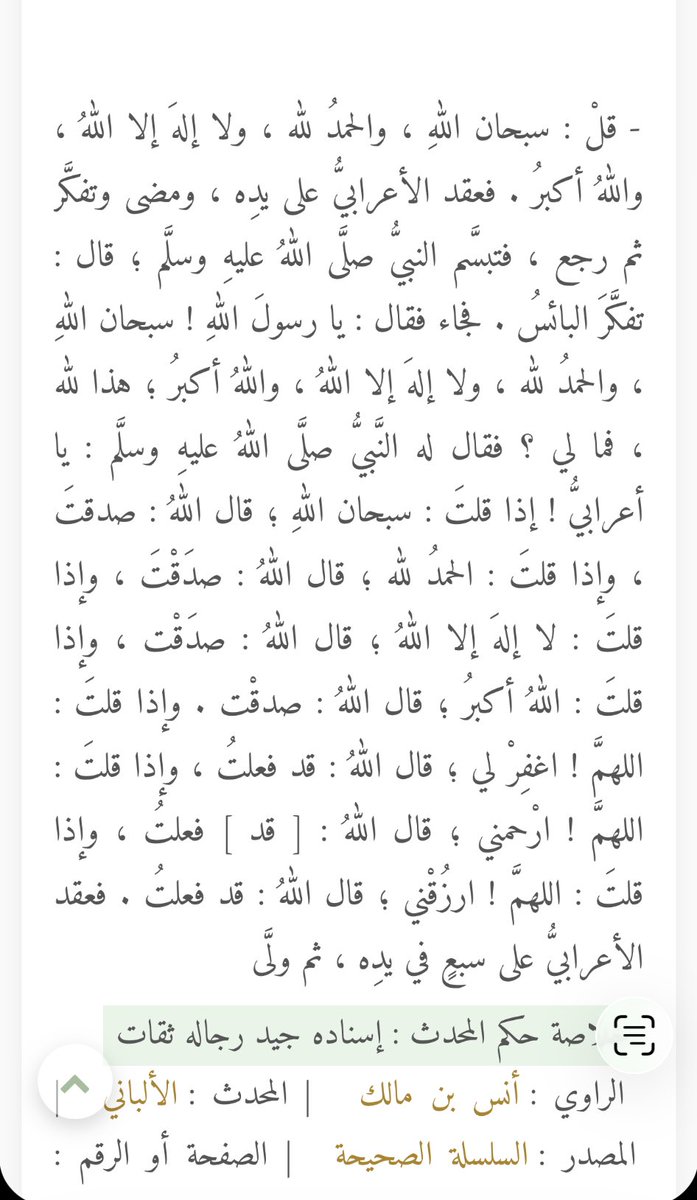 - قلْ : سبحان اللهِ ، والحمدُ لله ، ولا إلهَ إلا اللهُ ،
واللهُ أكبرُ . فعقد الأعرابيُّ على يدِه ، ومضى وتفكَّر
ثم رجع ، فتبسَّم النبيُّ صلَّى اللهُ عليهِ وسلَّم ؛ قال :
تفكَّرَ البائسُ . فجاء فقال : يا رسولَ اللهِ ! سبحان اللهِ
، والحمدُ لله ، ولا إلهَ إلا اللهُ ، واللهُ أكبرُ ؛ هذا لله
، فما لي ؟ فقال له النَّبيُّ صلَّى اللهُ عليهِ وسلَّم : يا
أعرابيُّ ! إذا قلتَ : سبحان اللهِ ؛ قال اللهُ : صدقتَ
، وإذا قلتَ : الحمدُ لله ؛ قال اللهُ : صدَقْتَ ، وإذا
قلتَ : لا إلهَ إلا اللهُ ؛ قال اللهُ : صدَقْت ، وإذا
قلتَ : اللهُ أكبرُ ؛ قال اللهُ : صدقْت . وإذا قلتَ :
اللهمَّ ! اغفِرْ لي ؛ قال اللهُ : قد فعلتُ ، وإذا قلتَ :
اللهمَّ ! ارْحمني ؛ قال اللهُ : [ قد ] فعلتُ ، وإذا
قلتَ : اللهمَّ ! ارزُقْني ؛ قال اللهُ : قد فعلتُ . فعقد
الأعرابيُّ على سبعٍ في يدِه ، ثم ولَّى
حكم المحدث : إسناده جيد رجاله ثقات
الراوي : أنس بن مالك | المحدث : الألباني |
المصدر : السلسلة الصحيحة | الصفحة أو الرقم :